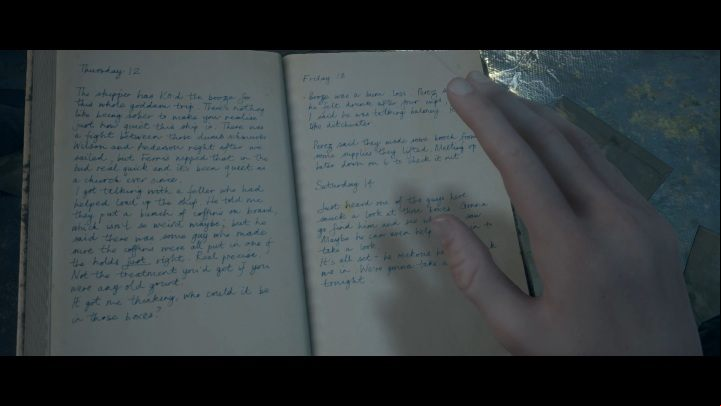 Thursday 12
The skipper has KO'd the booze for
this whole goddam trip. There's nothing
like being sober to make you realise
just how quiet this ship is. There was
a fight between those dumb schmucks
Wilson and Anderson right after we
sailed, but Ferris nipped that in the
bud real quick and it's been quiet as
a church ever since.
I got talking with a feller who had
helped load up the ship. He told me
they put a bunch of coffins on board,
which isn't so weird maybe, but he
said there was some guy who made
sure the coffins were all put in one of
the holds just right. Real precise.
Not the treatment you'd get if you
were any old grunt.
It got me thinking, who could it be
in those boxes?
Friday 13
Booze was a bum loss. Perez
he felt drunk after four cups.
I said he was talking baloney.
like ditchwater
Perez said they made some hooch from
some supplies they lifted. Meeting up
later down on 6 to check it out
Saturday 14
Just heard one of the guys here
snuck a look at those boxes. Gonna
go find him and see saw
Maybe he can even help in to
take a look.
It's all set - he reckons he
me in. We're gonna take a
tonight